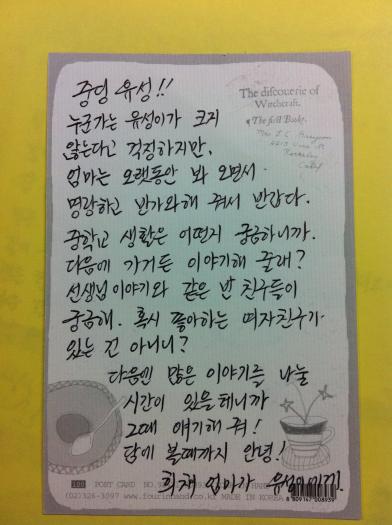 중딩 유성!!
The discouerie of
Witchcraft.
The first Booke.
누군가는 유성이가 크지
않는다고 걱정하지만,
엄마는 오랫동안 봐 오면서
명랑하고 반가와해 줘서 반갑다.
중학교 생활은 어떤지 궁금하니까.
다음에 가거든 이야기해 줄래?
선생님 이야기와 같은 반 친구들이
궁금해. 혹시 좋아하는 여자친구가
있는 건 아니니?
다음엔 많은 이야기를 나눌
시간이 있을 테니까
그때 얘기해 줘!
담에 볼때까지 안녕!
희채 엄마가 유성이에게.
100 POST CARD NO.
(02)326-3097 www.fourinhand.co.kr MADE IN KOREA
8 809167 008939